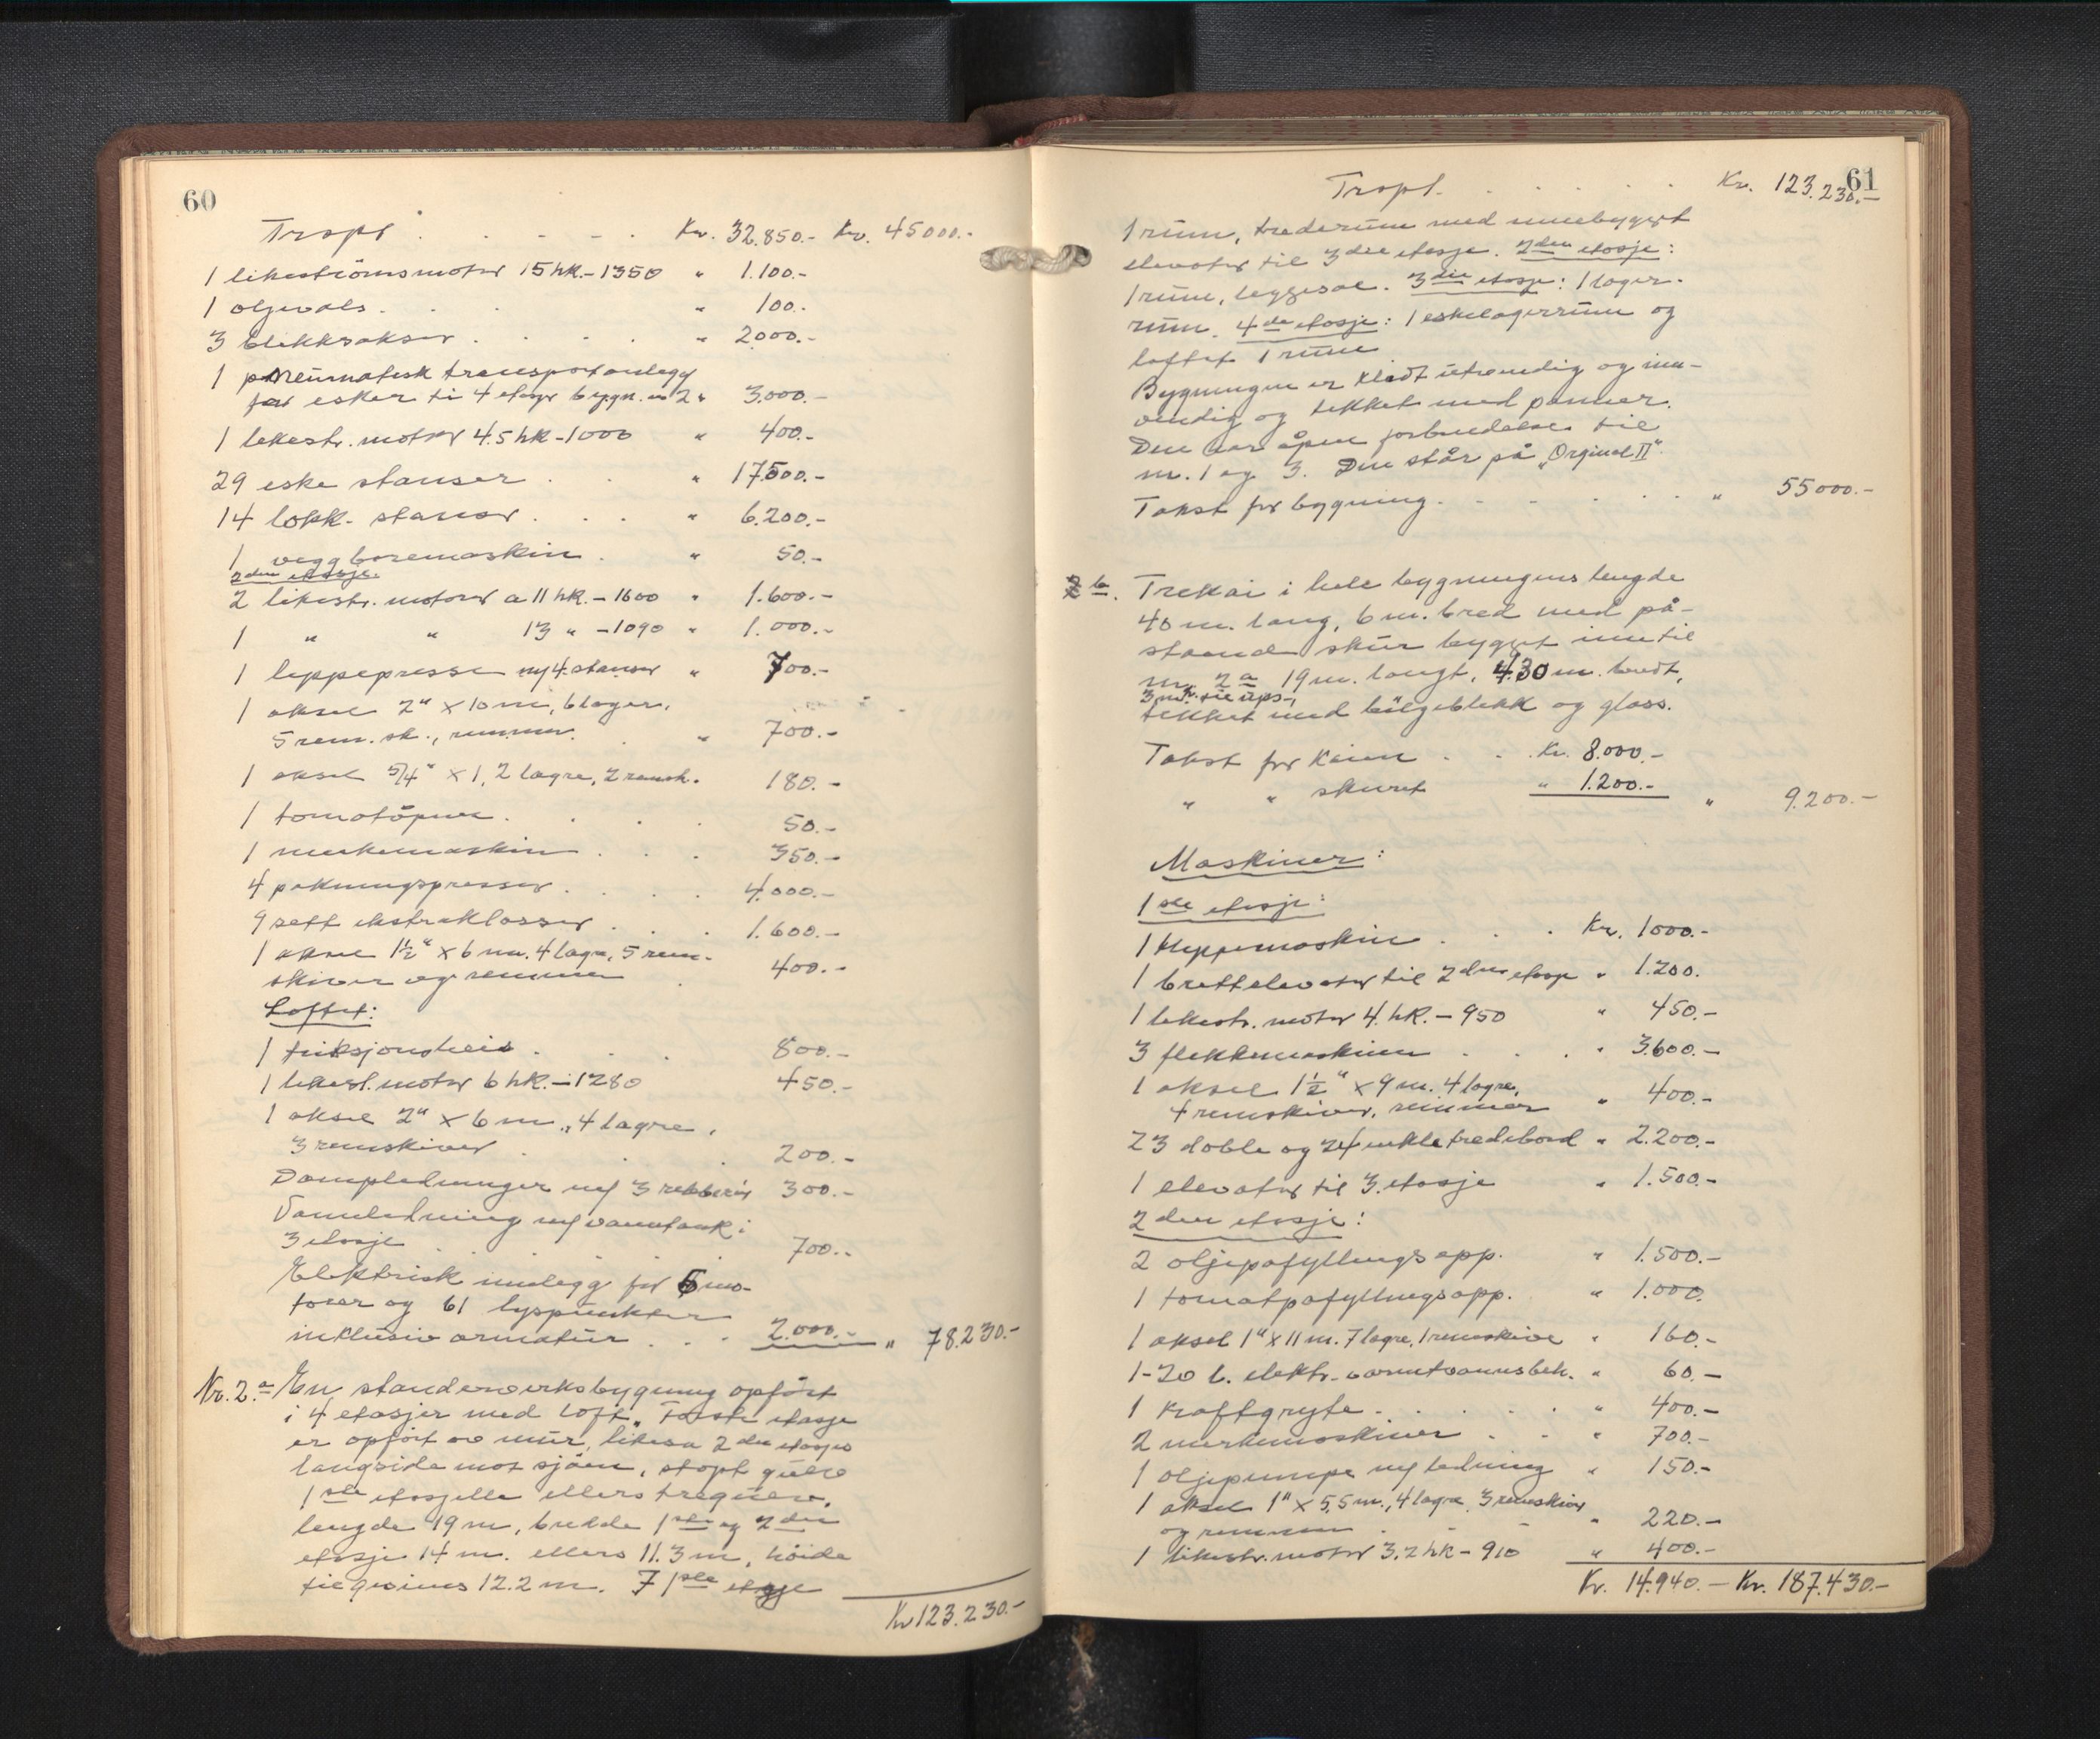 60
Transp. . . . . . Kr. 32.850.- Kr. 45000.-
1 likeströmsmotor 15 hk. - 1350 " 1.100.-
1 oljevals. . . . " 100.-
3 blikksakser . . . . " 2000.-
1 pneumatisk transportanlegg
for esker ti 4 etasjer bygn. nr 2 " 3.000.-
1 likestr. motor 4.5 hk - 1000 " 400.-
29 eske stanser . . " 17500.-
14 lokk- stanser . . . " 6.200.-
1 veggboremaskin . " 50.-
2den etasje.
2 likestr. motorer a 11 hk. - 1600 " 1.600.-
1 " " 13 " - 1090 " 1.000.-
1 leppepresse m/4 stanser " 700.-
1 aksel 2" x 10 m, 6 lager,
5 rem. sk., remmer. . " 700.-
1 aksel 5/4" x 1, 2 lagre, 2 remsk. 180.-
1 tomatåpner . . . . 50.-
1 merkemaskin . . . 350.-
4 pakningspresser . . . . 4.000.-
9 sett ekstraklosser . . . 1.600.-
1 aksel 1½" x 6 m. 4 lagre, 5 rem-
skiver og remmer . 400.-
Loftet:
1 friksjonsheis . . . 800.-
1 likest. motor 6 hk. - 1280 450.-
1 aksel 2" x 6 m., 4 lagre,
3 remskiver . . . 200.-
Dampledninger m/ 3 300.-
Vannledning m/ vanntank i
3 etasje . . . . . 700.-
Elektrisk innlegg for 6 mo-
torer og 61 lyspunkter
inklusiv armatur . . . 2.000.- " 78.230.-
Nr. 2a En standerverksbygning opfört
i 4 etasjer med loft. Förste etasje
er opfört av mur, likesa 2den etasjes
langside mot sjöen, stöpt gulv i
1ste etasje eller ellers tregulv,
lengde 19 m, bredde 1ste og 2den
etasje 14 m. ellers 11.3 m, höide
til gesims 12.2 m. I 1ste etasje
Kr 123.230.-
61
Transp. . . . . . Kr. 123.230.-
1 rum, trederum med innebygget
elevator til 3die etasje. 2den etasje:
1 rum, leggesal. 3die etasje: 1 lager-
rum. 4de etasje: 1 eskelagerrum og
loftet 1 rum
Bygningen er kledt utvendig og inn-
vendig og tekket med panner.
Den har åpen forbindelse til
nr. 1 og 3. Den står på „Orginal II".
Takst for bygning . . . . . . " 55000.-
2b. Trekai i hele bygningens lengde
40 m. lang, 6 m. bred med på-
stående skur bygget inntil
nr. 2a 19 m. langt, 4.30 m. bredt,
3 m. h. til ups-,
tekket med bölgeblikk og glass.
Takst for Kaien . . Kr. 8.000.-
" " skuret " 1.200.- " 9.200.-
Maskiner:
1ste etasje:
1 klippemaskin . . . Kr. 1000.-
1 brettelevator til 2den etasje " 1.200.
1 likestr. motor 4. hk. - 950 " 450.-
3 flekkemaskiner . . . " 3600.-
1 aksel 1½" x 9 m. 4 lagre,
4 remskiver, remmer " 400.-
23 doble og 24 enkle tredebord " 2.200.-
1 elevator til 3. etasje " 1.500.-
2den etasje:
2 oljepafyllingsapp. " 1.500.-
1 tomatpafyllingsapp. " 1.000.
1 aksel 1" x 11 m. 7 lagre, 1 remskive " 160.-
1-20 l. elektr. varmtvannsbeh. " 60.-
1 Kraftgryte . . . . . " 400.-
2 merkemaskiner . . " 700.-
1 oljepumpe m/ ledning " 150.-
1 aksel 1" x 5,5 m., 4 lagre, 3 remskiver
og remmer . - - " 220.-
1 likestr. motor 3.2 hk - 910 " 400.-
Kr. 14.940.- Kr. 187.430.-